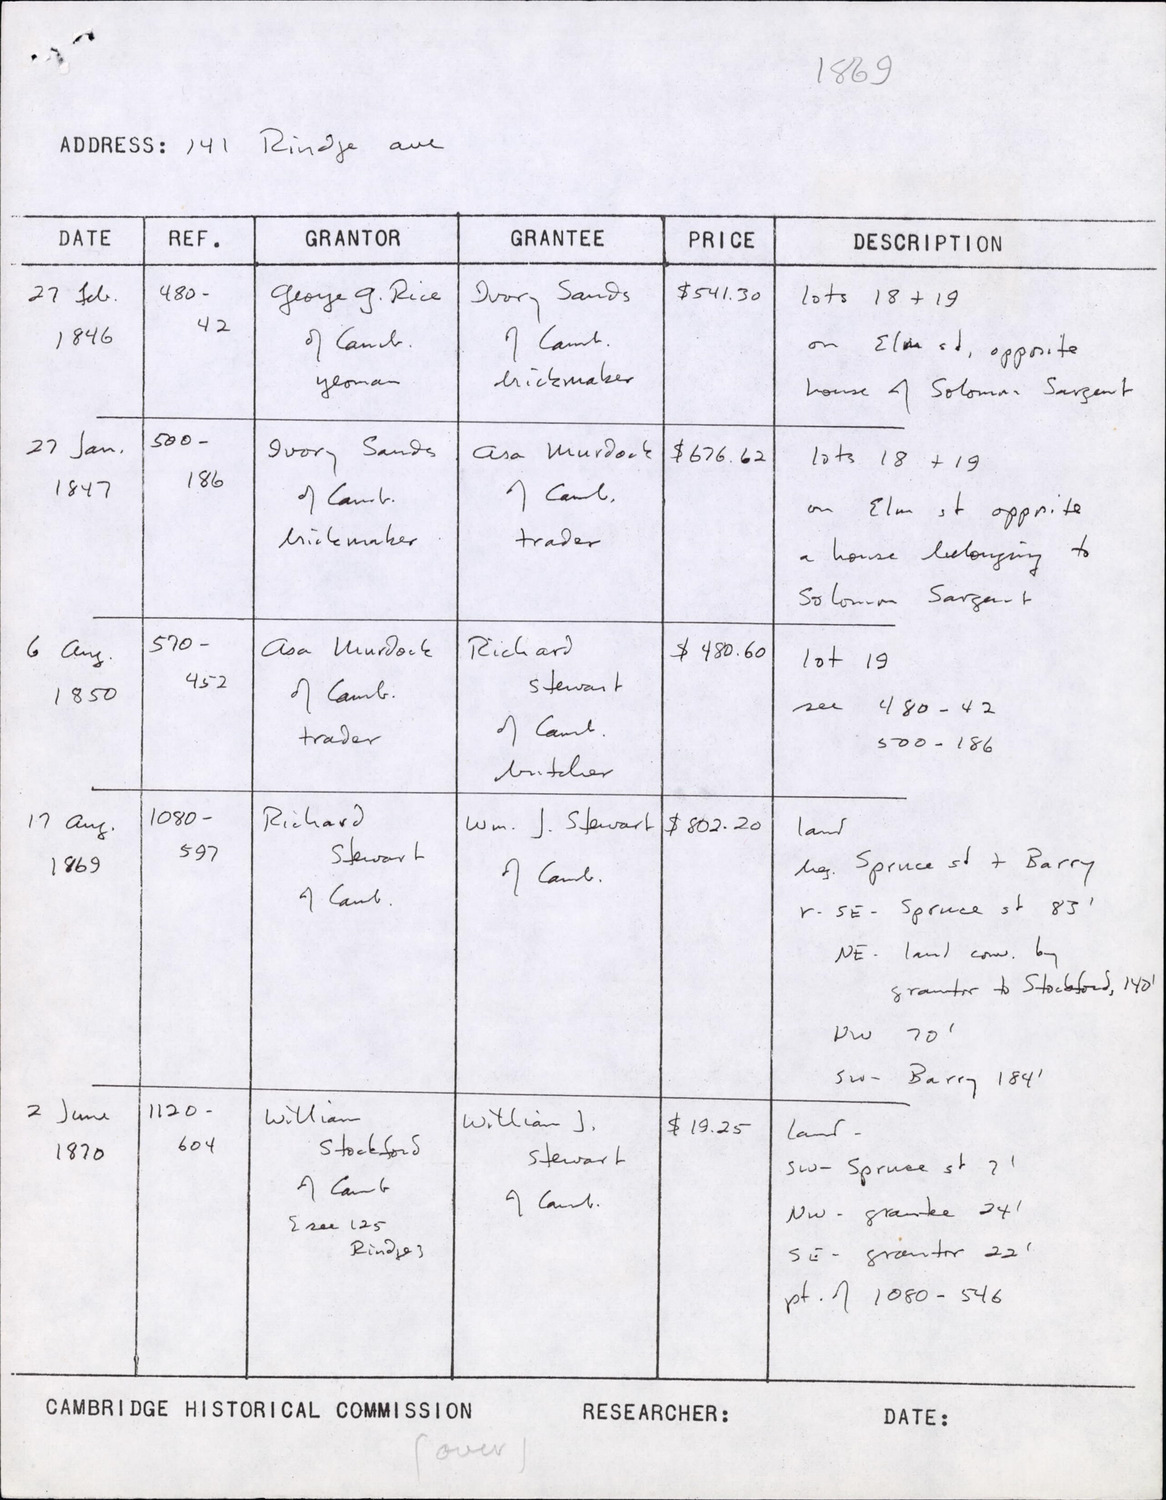 1869
ADDRESS: 141 Rindge ave
DATE REF. GRANTOR GRANTEE PRICE DESCRIPTION
27 Feb. 1846
480-42
George G. Rice
of Camb.
yeoman
Ivory Sands
of Camb.
brickmaker
$541.30
lots 18 + 19
on Elm st, opposite
house of Solomon Sargent
27 Jan. 1847
500-186
Ivory Sands
of Camb.
brickmaker
Asa Murdock
of Camb.
trader
$676.62
lots 18 + 19
on Elm st opposite
a house belonging to
Solomon Sargent
6 Aug. 1850
570-452
Asa Murdock
of Camb.
trader
Richard
Stewart
of Camb.
butcher
$480.60
lot 19
see 480-42
500-186
17 Aug. 1869
1080-597
Richard
Stewart
of Camb.
Wm. J. Stewart
of Camb.
$802.20
land
beg. Spruce st + Barry
r- SE- Spruce st 83'
NE- land conv. by
grantor to Stockford, 140'
NW 70'
SW- Barry 184'
2 June 1870
1120-604
William
Stockford
of Camb
[see 125
Rindge]
William J.
Stewart
of Camb.
$19.25
land-
SW- Spruce st 7'
NW- grantee 24'
SE- grantor 22'
pt. of 1080-546
CAMBRIDGE HISTORICAL COMMISSION RESEARCHER: DATE:
(over)